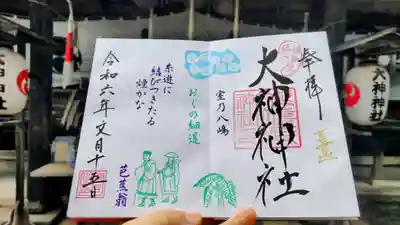 奉拝
大神神社
室乃八嶋
おくの細道
糸遊に
結びつきたる
煙かな
芭蕉翁
令和六年文月十五日
大神神社